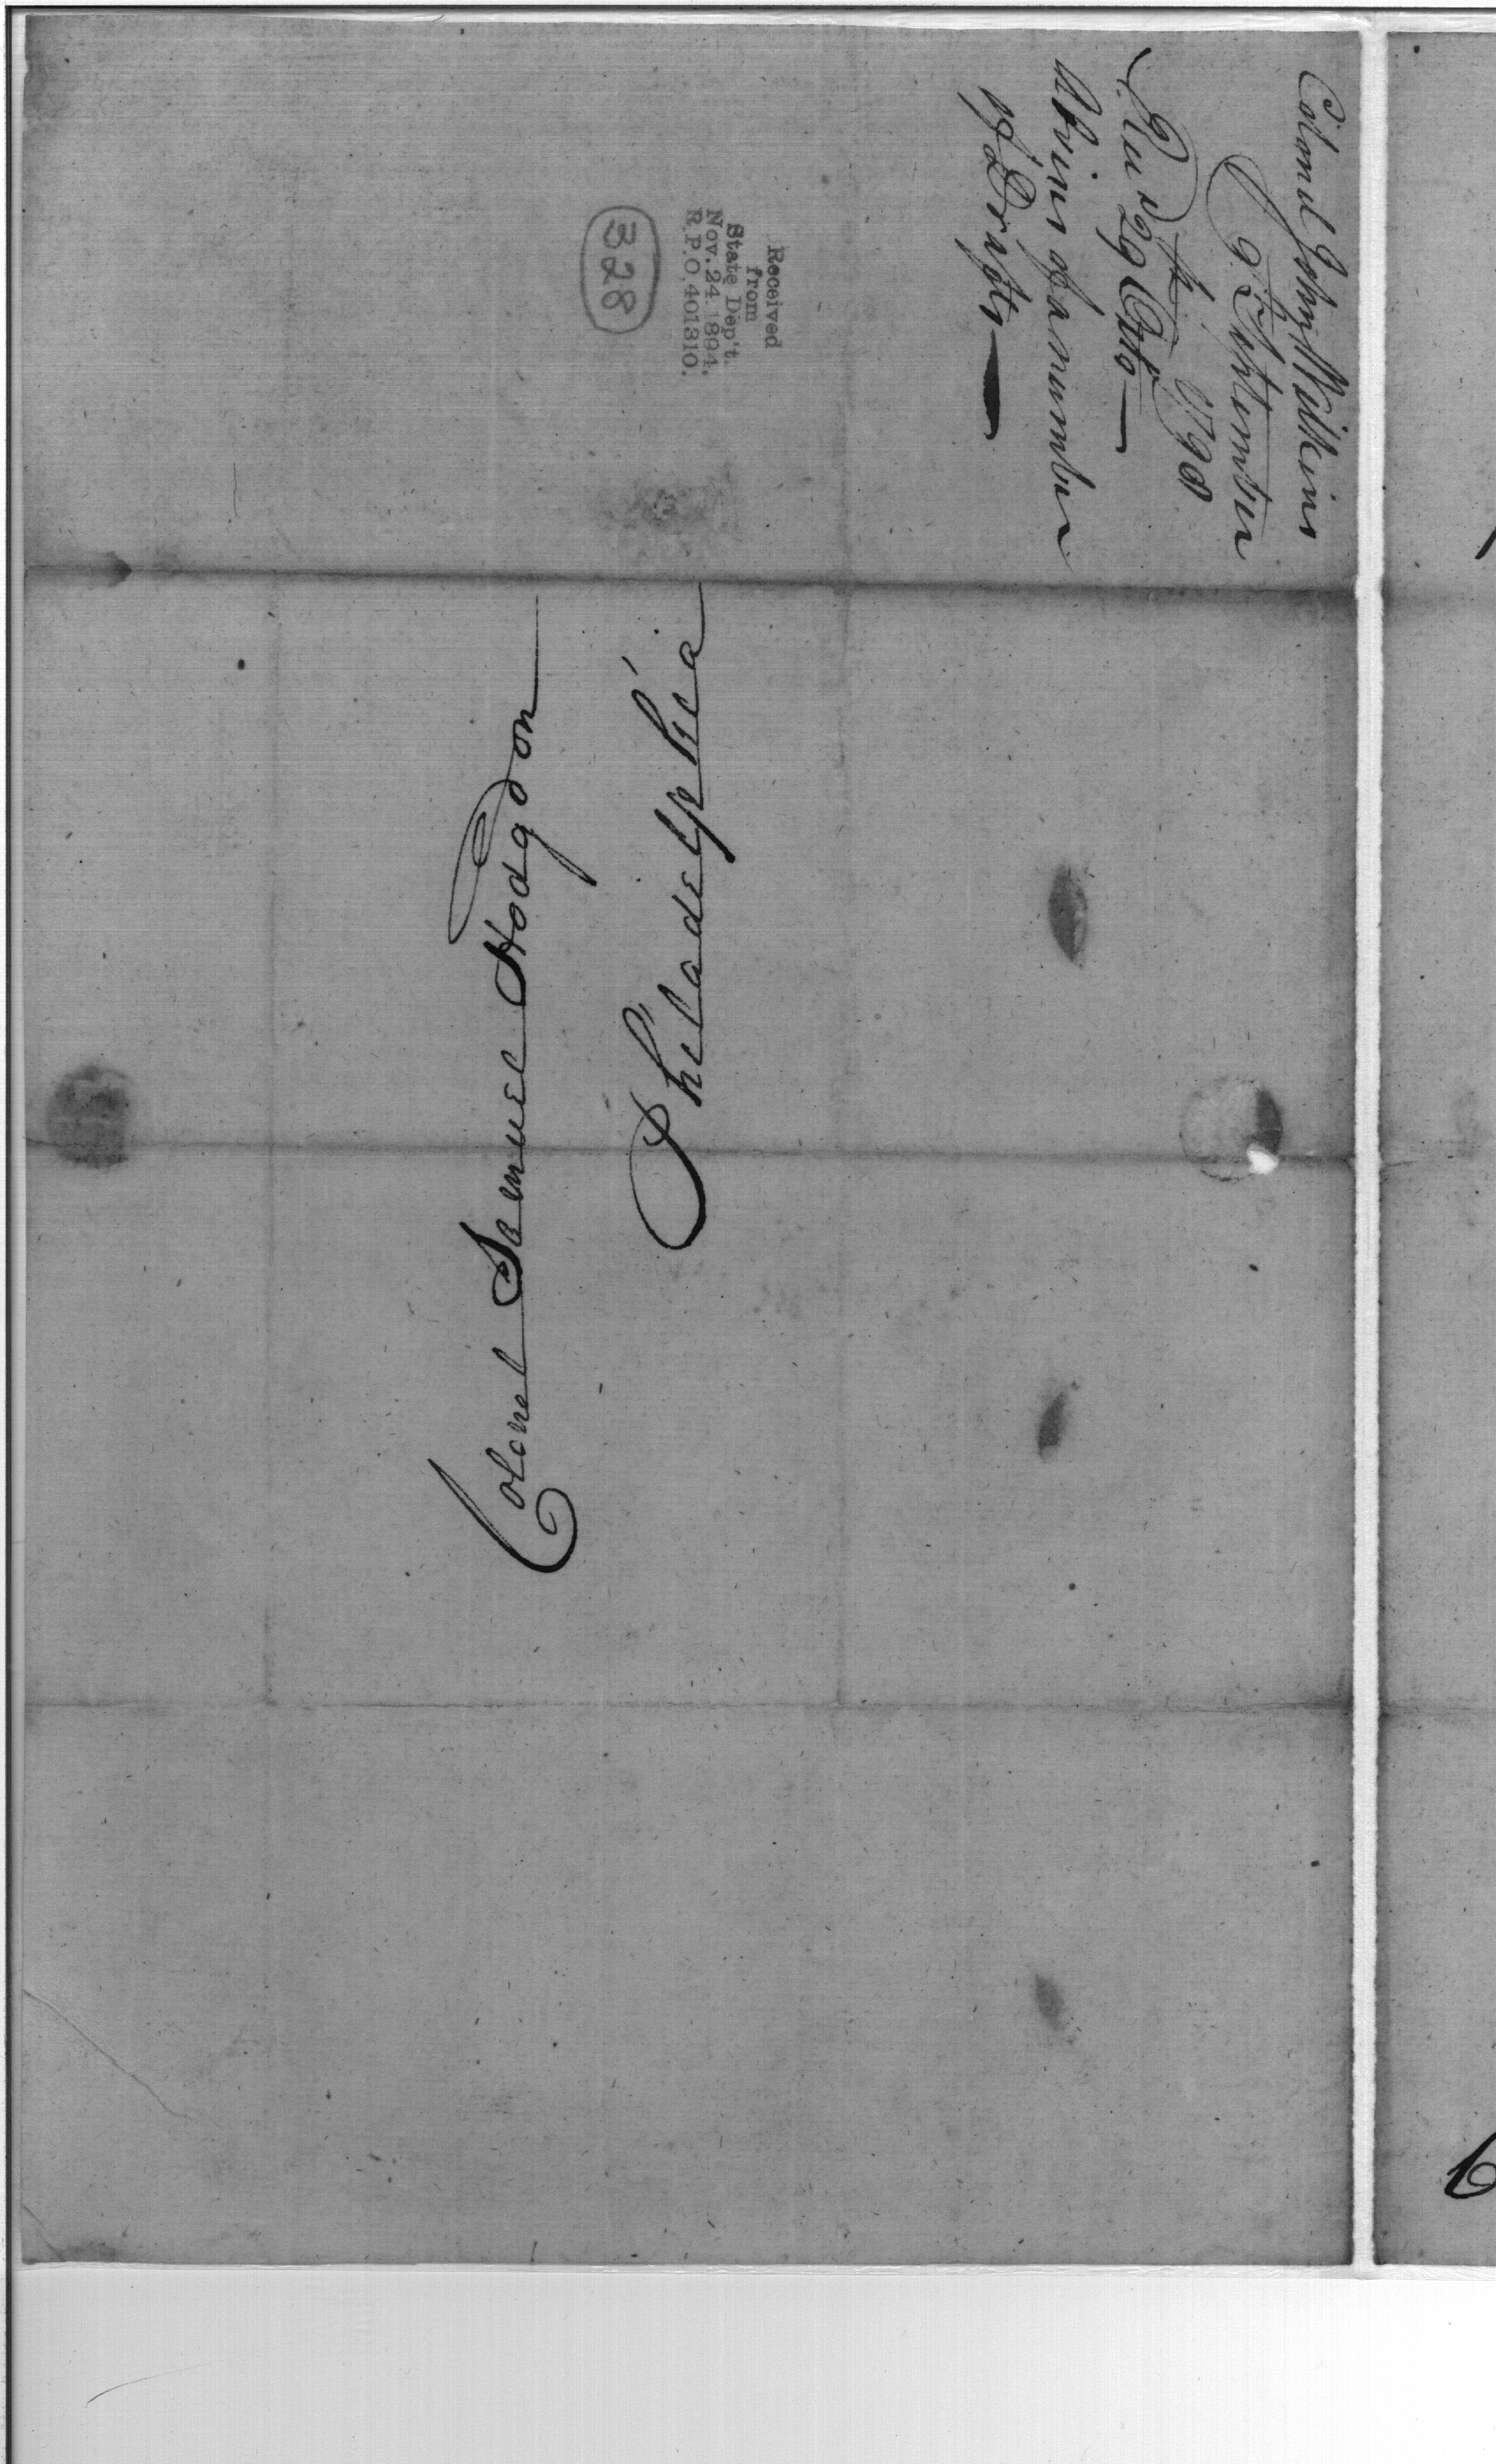 Colonel John Wilkins
9 September
1798
Rec'd 29th Octo
Advice of a number
of Drafts
Received
from
State Dep't.
Nov. 24 1894.
R.P.O. 401310.
328
Colonel Samuel Hodgdon
Philadelphia